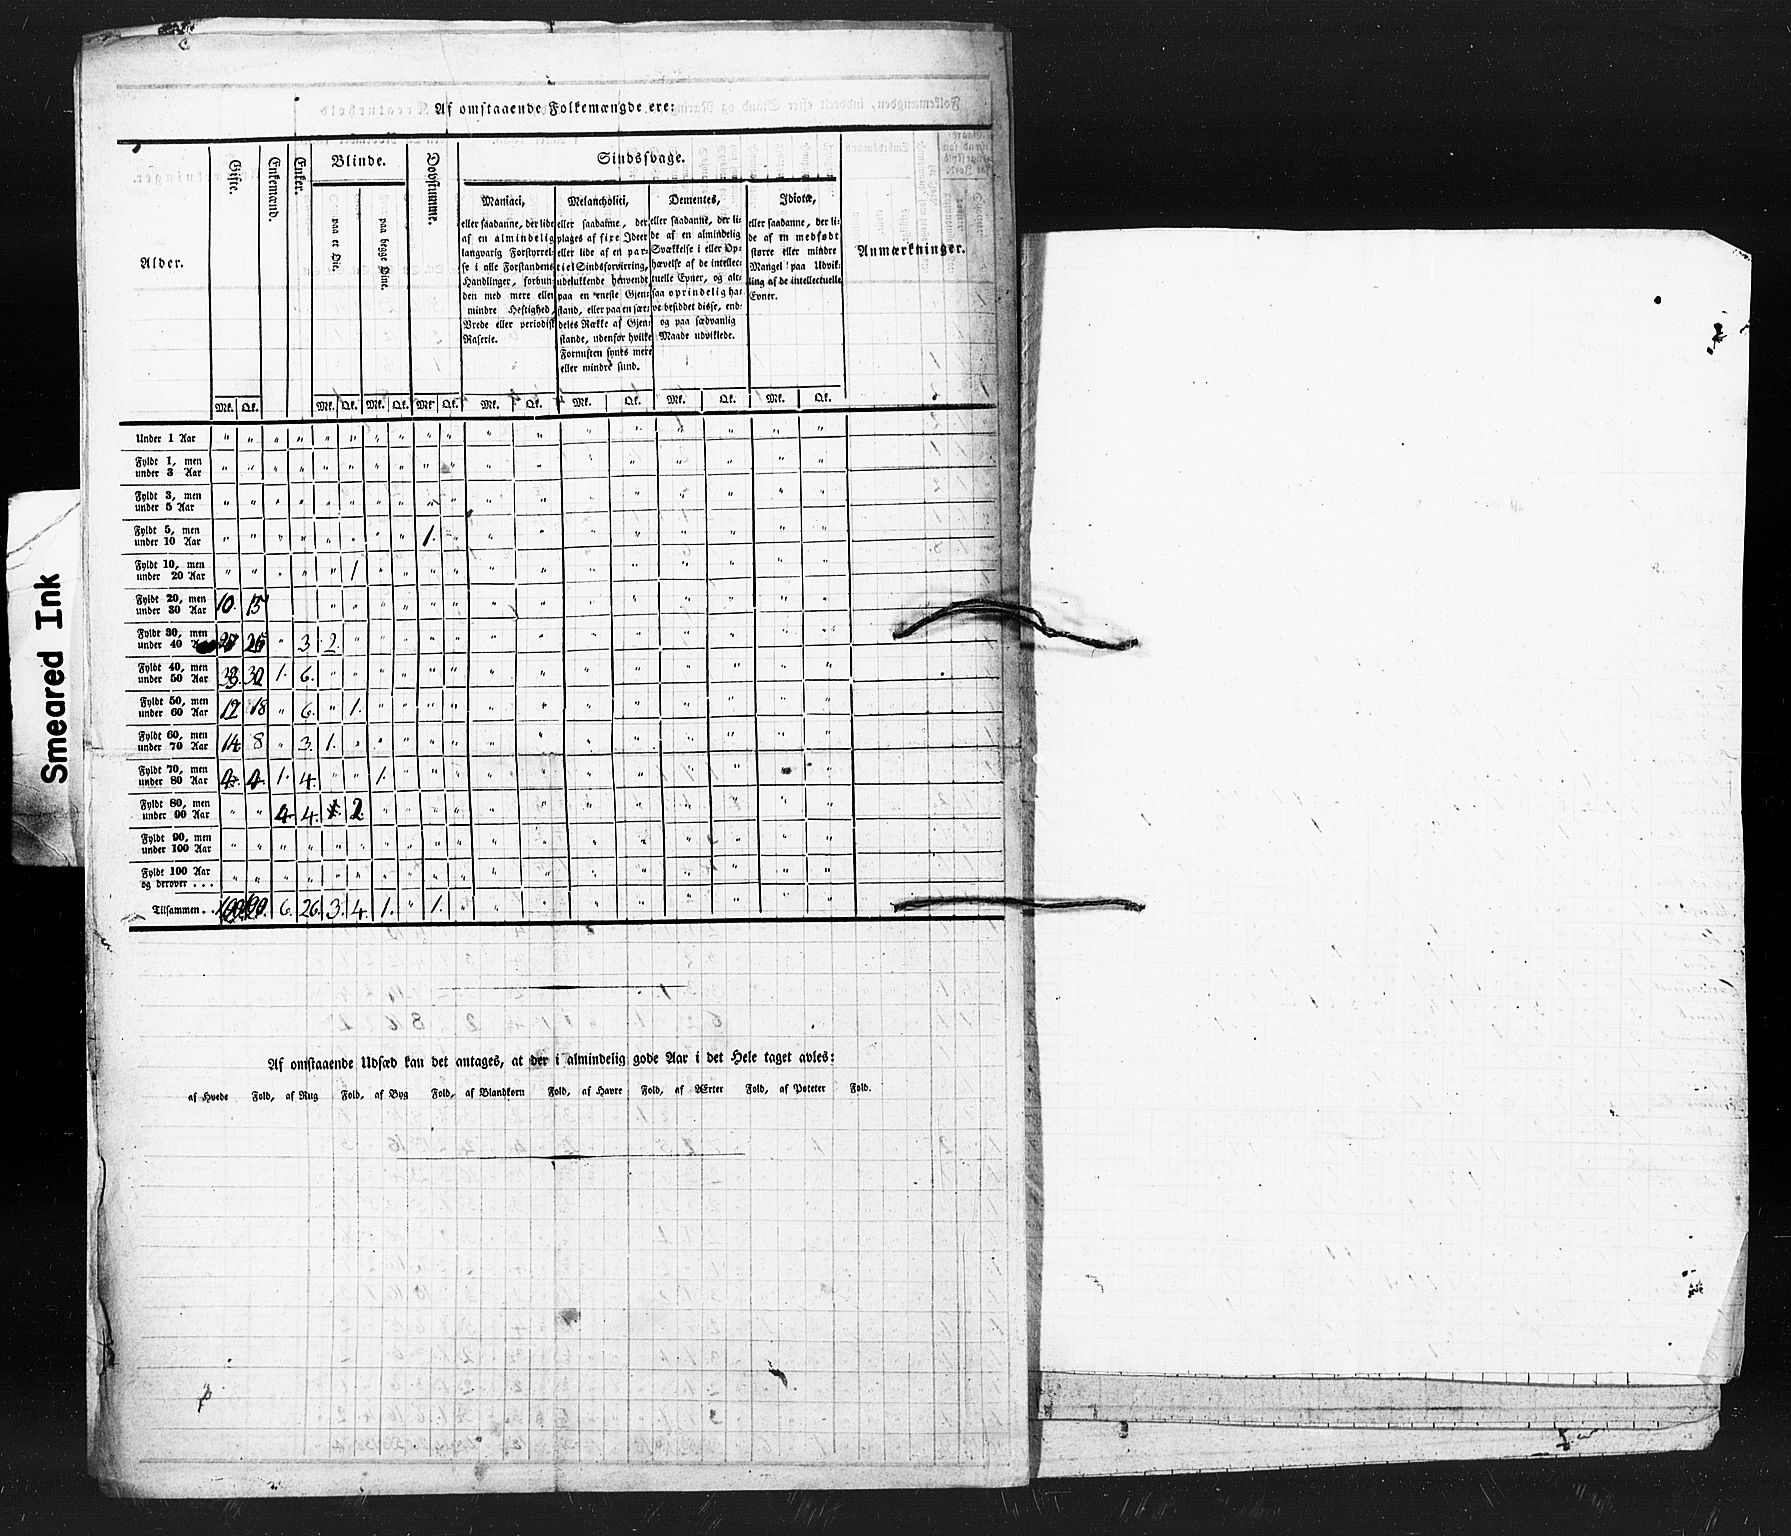 Smeared Ink
Af omstaaende Folkemængde ere:
Alder.
Gifte.
Enkemænd.
Enker.
Blinde.
paa et Øie.
paa begge Øine.
Døvstumme.
Sindssvage.
Maniaci,
eller saadanne, der lide
af en almindelig
langvarig Forstyrrel-
se i alle Forstandens
Handlinger, forbun-
den med mere eller
mindre Heftighed,
Vrede eller periodisk
Raserie.
Melancholici,
eller saadanne, der
plages af fixe Ideer
eller lide af en par-
tiel Sindsforvirring,
udelukkende henvendt
paa en eneste Gjen-
stand, eller paa en sær-
deles Række af Gjen-
stande, udenfor hvilke
Fornuften synes mere
eller mindre sund.
Dementes,
eller saadanne, der li-
de af en almindelig
Svækkelse i eller Op-
hævelse af de intellec-
tuelle Evner, og alt-
saa oprindelig ha-
ve besiddet disse, end-
og paa sædvanlig
Maade udviklede.
Idiotæ,
eller saadanne, der li-
de af en medfødt
større eller mindre
Mangel paa Udvik-
ling af de intellectuelle
Evner.
Anmærkninger.
Mk. Qk. Mk. Qk. Mk. Qk. Mk. Qk. Mk. Qk. Mk. Qk. Mk. Qk. Mk. Qk.
Under 1 Aar " " " " " " " " " " " " " " " " " "
Fyldt 1, men
under 3 Aar " " " " " " " " " " " " " " " "
Fyldt 3, men
under 5 Aar " " " " " " " " " " " " " " " "
Fyldt 5, men
under 10 Aar " " " " " " " " 1. " " " " " " " "
Fyldt 10, men
under 20 Aar " " " " " 1 " " " " " " " " " " " "
Fyldt 20, men
under 30 Aar 10. 15 " " " " " " " " " " " " " "
Fyldt 30, men
under 40 " 3 2. " " " " " " " " " " " " "
Fyldt 40, men
under 50 Aar 1. 6. " " " " " " " " " " " " " "
Fyldt 50, men
under 60 Aar 12 18 " 6. " 1. " " " " " " " " " " " "
Fyldt 60, men
under 70 Aar 14 8 " 3. 1. " " " " " " " " " " " " "
Fyldt 70, men
under 80 Aar 4. 4. 1. 4. " " 1. " " " " " " " " " "
Fyldt 80, men
under 90 Aar " " 4. 4. 2. " " " " " " " " " " " "
Fyldt 90, men
under 100 Aar " " " " " " " " " " " " " " " " " "
Fyldt 100 Aar
og derover . . . " " " " " " " " " " " " " " " " " "
Tilsammen . . 6. 26. 3. 4. 1. " 1. " " " " " " " " "
Af omstaaende Udsæd kan det antages, at der i almindelig gode Aar i det Hele taget avles:
af Hvede Fold, af Rug Fold, af Byg Fold, af Blandkorn Fold, af Havre Fold, af Ærter Fold, af Poteter Fold.